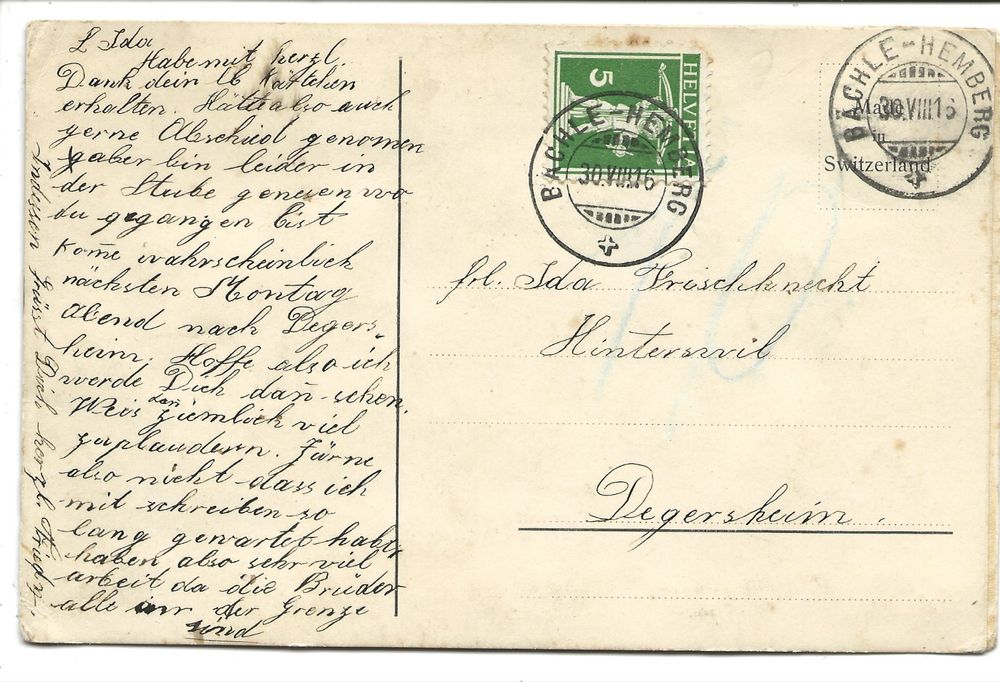 L Ida
Habe mit herzl.
Dank dein lb Kärtchen
erhalten. Hätte also auch
gerne Abschied genomen
aber bin leider in
der Stube gewesen wo
du gegangen bist
Kom̄e wahrscheinlich
nächsten Montag
Abend nach Degers-
heim. Hoffe also ich
werde Dich dan̄ sehen.
Weis dan ziemlich viel
zuplaudern. Zürne
also nicht dass ich
mit schreiben so
lang gewartet habe,
haben also sehr viel
arbeit da die Brüder
alle an der Grenze
sind
Indessen grüsst Dich herzl.
HELVETIA
5
BÄCHLE-HEMBERG
30.VIII.16
BÄCHLE-HEMBERG
30.VIII.16
Made
in
Switzerland
frl. Ida Frischknecht
Hinterwil
Degersheim.